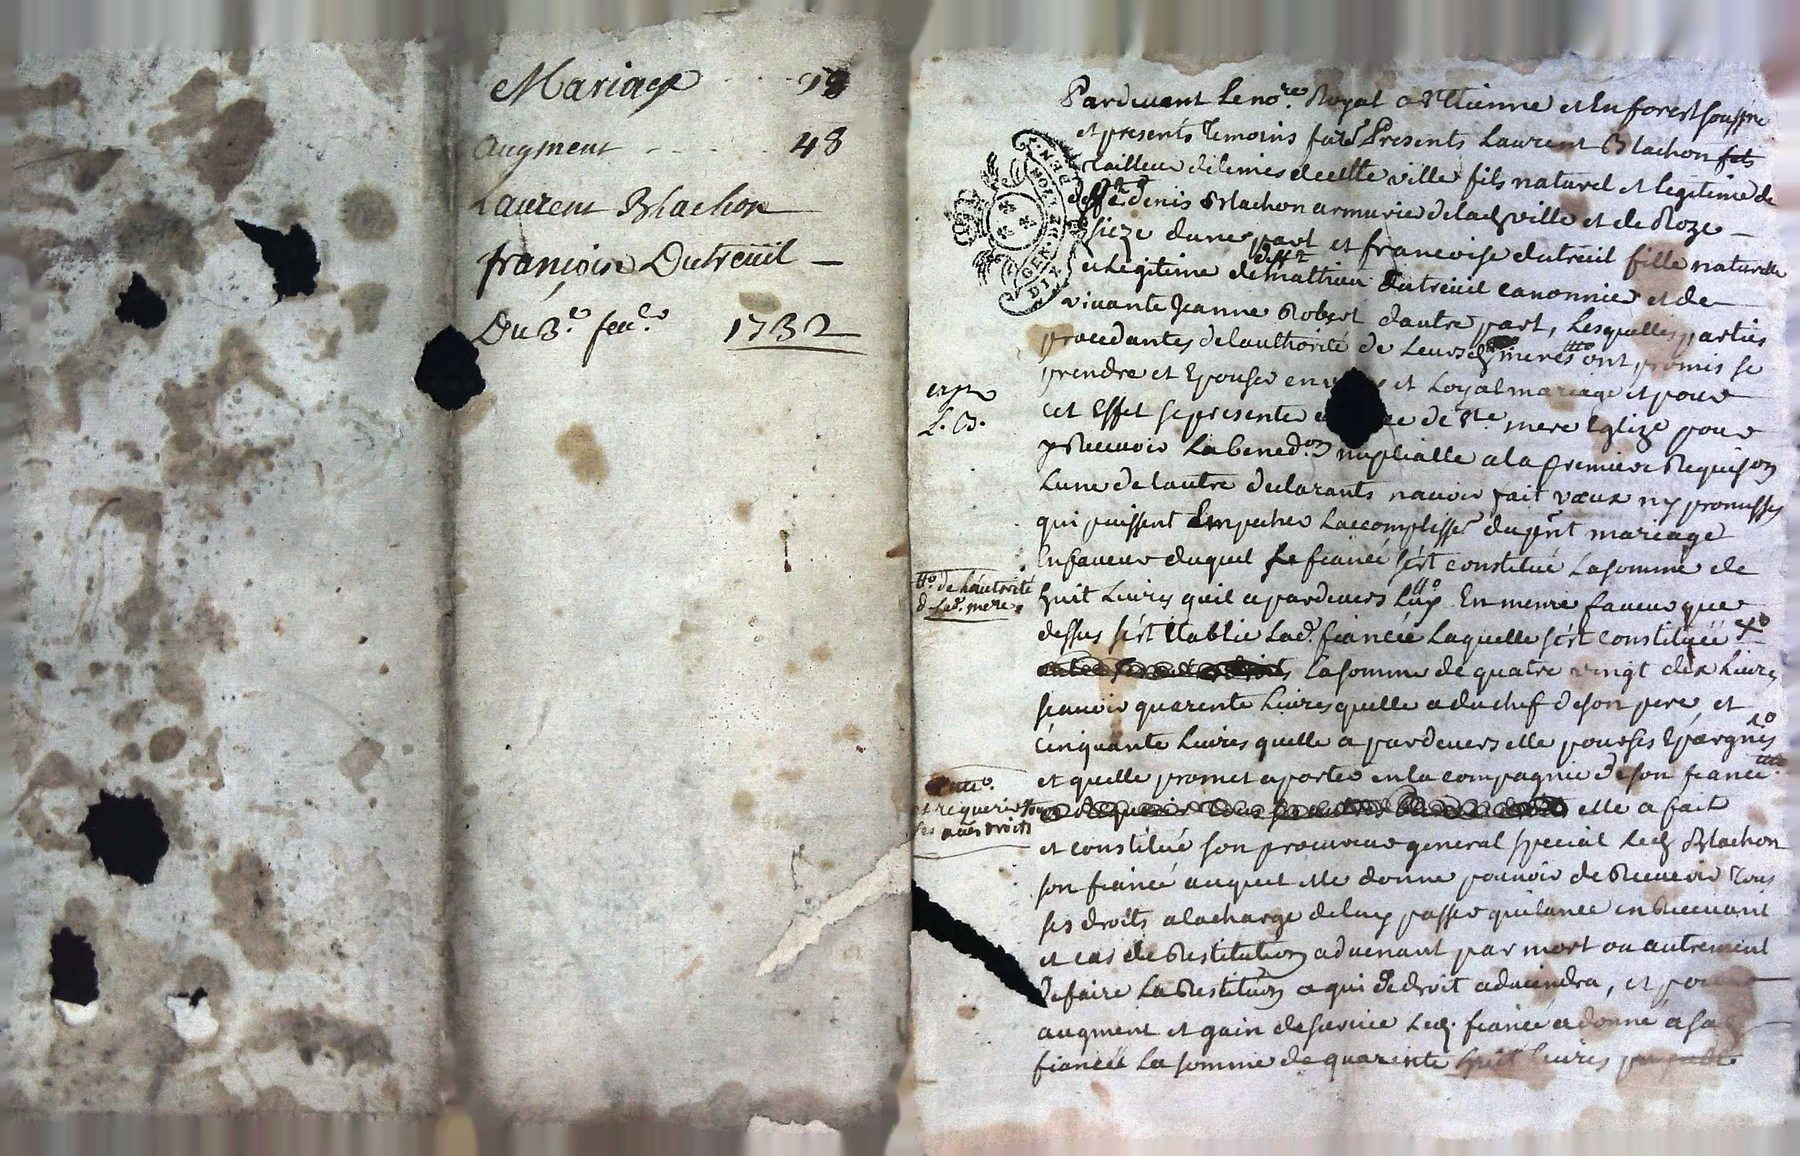 Mariage 98
Augment 48
Laurent Blachon
françoise Dutreuil
Du 3.e feu.r 1732
Pardeuant le no.re Royal a St Etienne et En forest soussine
et presents temoins fut Presents Laurent Blachon fils
tailleur de limes de cette ville fils naturel et legitime de
deff.t denis Blachon armurier de lad ville et de Roze
size dune part et francoise dutreuil fille naturelle
et legitime de deff.t mathieu dutreuil canonnier et de
viuante Jeanne Robert dautre part, Lesquelles parties
procedantes de lauthorité de Leurs meres ont promis se
prendre et Epouser en et Loyal mariage et pour
cet Effet se presenter de Ste mere Eglize pour
y Receuoir La bened.on nuptialle a la premiere Requison
Lune de lautre declarants nauoir fait vœux ny promesses
qui puissent Empecher Laccomplissem.t du pnt mariage
En faueur duquel Le fiancé sest constitué La somme de
huit Liures quil a pardeuers Luy En meme faueur que
dessus sest Etablie Lad. fiancée Laquelle sest constituée
La somme de quatre vingt dix Liures
scauoir quarente Liures quelle a du chef de son pere et
Cinquante Liures quelle a pardeuers elle pour ses Epargnes
et quelle promet aporter en la compagnie de son fiancé
elle a fait
et constitué son procureur general special Led Blachon
son fiancé auquel elle donne pouuoir de Receuoir tous
ses droits a la charge de luy passer quitance en Receuant
et cas de Restitution aduenant par mort ou autrement
de faire La Restitution a qui de droit aduiendra, et pour
augment et gain de suruie Led. fiancé a donné a sa
fiancée La somme de quarente huit liures
L. B.
de lautorité
d sad. mere
et requerir tous
ses droits
GEN.